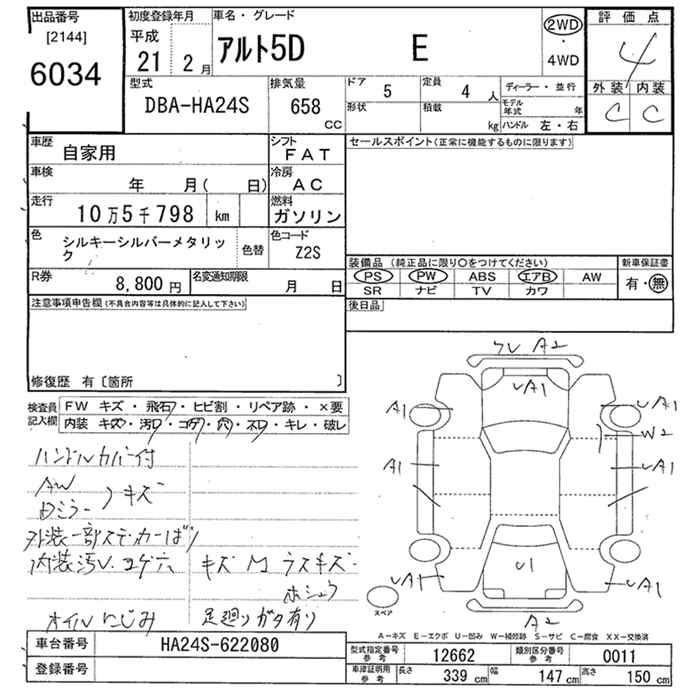 出品番号
[2144]
6034
初度登録年月
平成
21 2月
車名・グレード
アルト5D E
2WD
・
4WD
評価点
4
外装 内装
C C
型式
DBA-HA24S
排気量
658 CC
ドア
5
定員
4 人
ディーラー・並行
形状
積載
kg
モデル年式 年
ハンドル 左・右
車歴
自家用
シフト
FAT
車検
年 月( 日)
冷房
AC
走行
10万5千798 km
燃料
ガソリン
色
シルキーシルバーメタリック
色替
色コード
Z2S
R券
8,800円
名変通知期限
月 日
セールスポイント(正常に機能するものに限ります)
装備品(純正品に限り○をつけてください)
PS PW ABS エアB AW
SR ナビ TV カワ
新車保証書
有・無
後日品
注意事項申告欄(不具合内容等は具体的に記入して下さい)
修復歴 有〔箇所 〕
検査員記入欄
FW キズ・飛石・ヒビ割・リペア跡・×要
内装 キズ・汚れ・コゲ・穴・スレ・キレ・破レ
ハンドルカバー付
AW
ドミラー
キズ
外装一部ステッカーばり
内装汚レ.コゲ穴
キズ M ラスキズ.
ホシュウ
オイルにじみ 足廻りガタ有り
ワレ A2
UA1
A1
UA1
W2
A1
UA1
U1
UA1
UA1
A2
スペア
A−キズ E−エクボ U−凹み W−補修跡 S−サビ C−腐食 XX−交換済
車台番号
HA24S-622080
登録番号
型式指定番号 参考
12662
類別区分番号 参考
0011
車庫証明用 参考
長さ 339 cm
幅 147 cm
高さ 150 cm